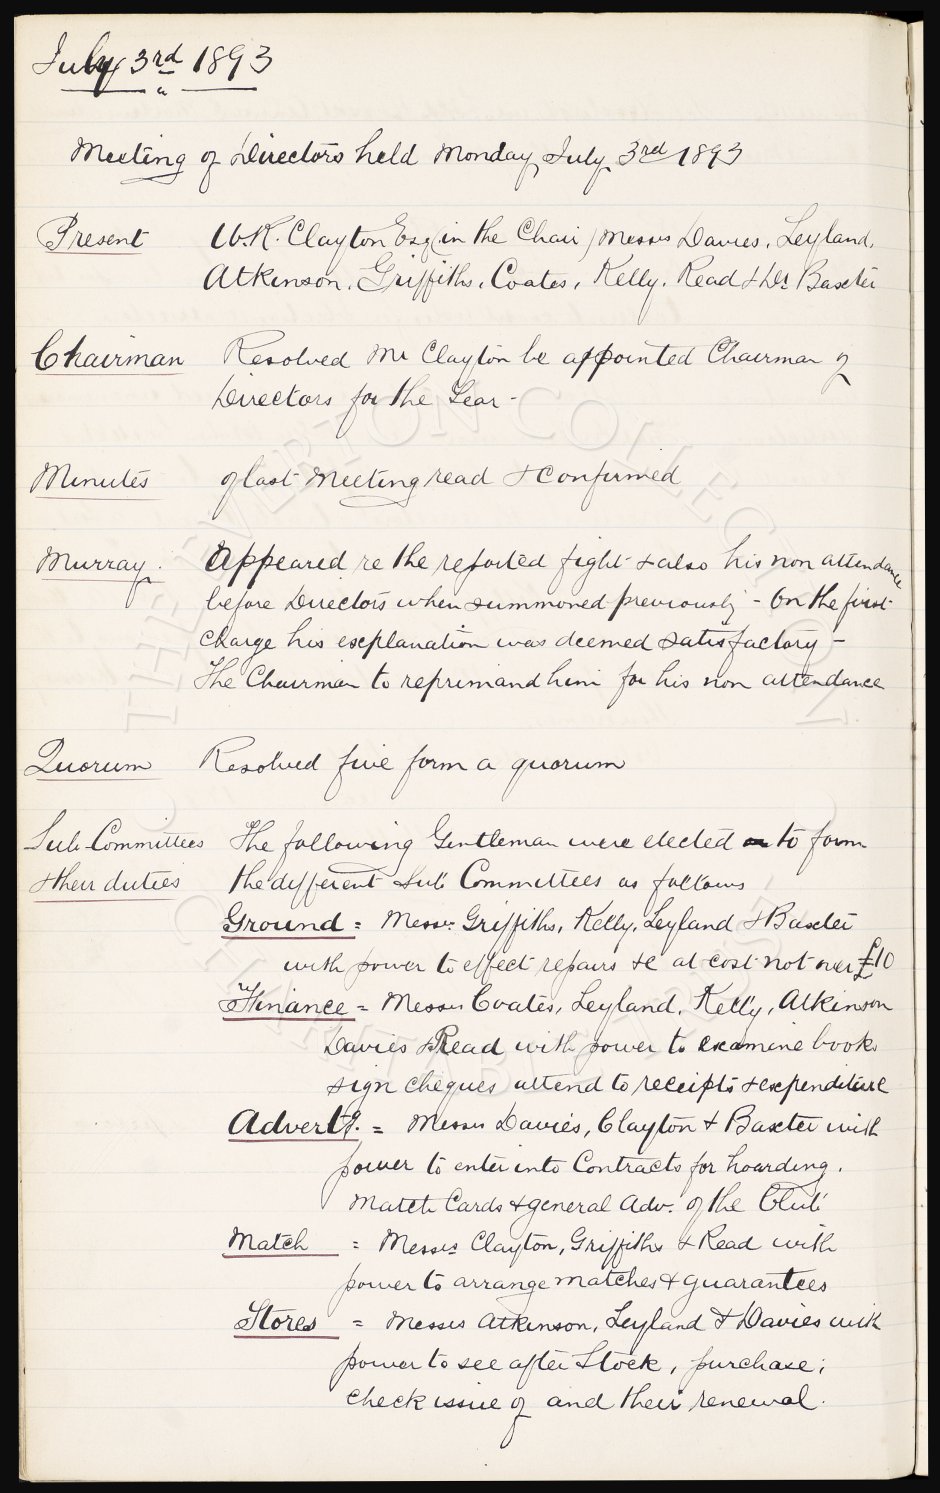 July 3rd 1893
Meeting of Directors held Monday July 3rd 1893
Present W.R. Clayton Esq (in the Chair) Messrs Davies, Leyland,
Atkinson, Griffiths, Coates, Kelly, Read & Dr Baxter
Chairman Resolved Mr Clayton be appointed Chairman of
Directors for the Year -
Minutes of last Meeting read & confirmed
Murray. Appeared re the reported fight & also his non attendance
before Directors when summoned previously - On the first
charge his explanation was deemed satisfactory -
The Chairman to reprimand him for his non attendance
Quorum Resolved five form a quorum
Sub-Committees The following Gentleman were elected to form
& their duties the different Sub Committees as follows
Ground = Messrs Griffiths, Kelly, Leyland & Baxter
with power to effect repairs &c at cost not over £10
Finance = Messrs Coates, Leyland, Kelly, Atkinson
Davies & Read with power to examine books
sign cheques attend to receipts & expenditure
Advertg. = Messrs Davies, Clayton & Baxter with
power to enter into Contracts for hoarding,
Match Cards & general Adv. of the Club
Match = Messrs Clayton, Griffiths & Read with
power to arrange matches & guarantees
Stores = Messrs Atkinson, Leyland & Davies with
power to see after Stock, purchase,
check issue of and their renewal.
THE EVERTON COLLECTION
CHARITABLE TRUST